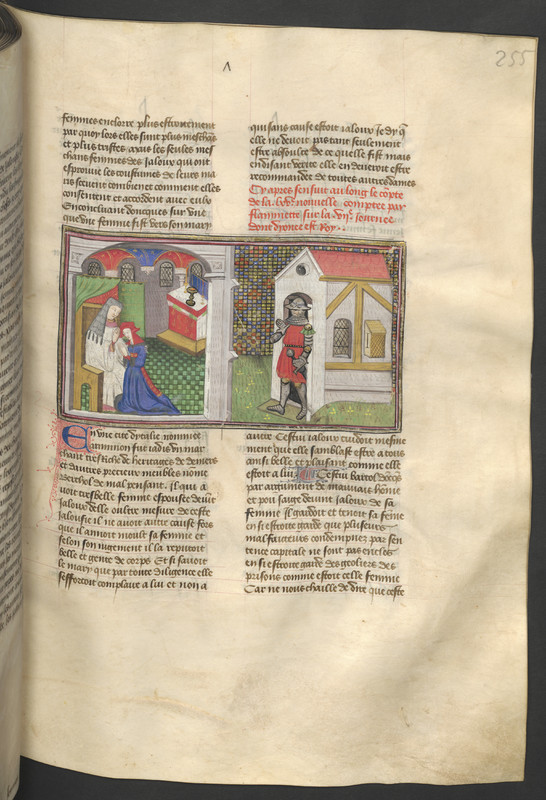 255
femmes enclorre plus estroitement
par quoy lors elles sunt plus meschãs
et plus tristes mais les seules mes
chans femmes des jaloux qui ont
esprouve les coustumes de leurs ma
ris sceivent combien et comment elles
consentent et accordent avec eulx
En concluant doncques sur une
que une femme fist vers son mary
qui sans cause estoit jaloux Je dy q̃
elle ne devoit pas tant seulement
estre absoulte de ce quelle fist mais
en disant verite elle en devroit estre
recommandee de toutes autres dames
Cy apres sensuit au long le cõpte
de la nouvelle comptee par
flammette sur la vijᵉ journee
dont dyonee est Roy
En une cite dytalie nommee
Ariminon fut jadis un mar
chant tres riche de heritages de deniers
et dautres precieux meubles nomé
Berthol de mal pensant. Il qui a
voit tresbelle femme espouse devĩt
jaloux delle oultre mesure de ceste
jalousie il ne avoit autre cause fors
que il amoit moult sa femme et
selon son jugement il la reputoit
belle et gente de corps Et si savoit
le mary que par toute diligence elle
sefforcoit complaire a lui et non a
autre Cestui jaloux cuidoit mesme
ment que elle samblast estre a tous
ainsi belle et plaisant comme elle
estoit a lui Cestui bartol
par argument de mauvais hõme
et pou sage devint jaloux de sa
femme Il gardoit et tenoit sa féme
en si estroite garde que plusieurs
malfaiteurs condempnez par sen
tence capitale ne sont pas en celes
en si estroite garde des geoliers des
prisons comme estoit celle femme
Car ne nous chaille de dire que ceste